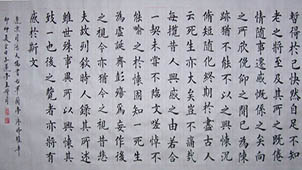 暫得於己怏然自足不知
老之將至及其所之既惓
情隨事遷感慨係之矣向
之所欣俛仰之間已為陳
跡猶不能不以之興懷況
脩短隨化終期於盡古人
云死生亦大矣豈不痛哉
每攬昔人興感之由若合
一契未嘗不臨文嗟悼不
能喻之於懷固知一死生
為虛誕齊彭殤為妄作後
之視今亦猶今之視昔悲
夫故列敘時人錄其所述
雖世殊事異所以興懷其
致一也後之覽者亦將有
感於斯文